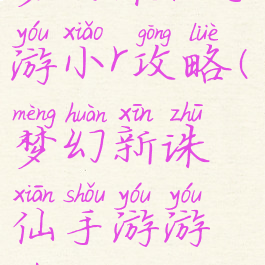 yóu xiǎo gōng lüè
游小r攻略(
mèng huàn xīn zhū
梦幻新诛
xiān shǒu yóu yóu
仙手游游